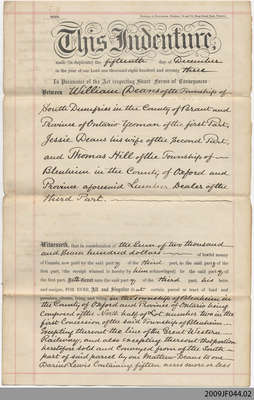 This Indenture,
made (in duplicate) the fifteenth day of December
in the year of our Lord one thousand eight hundred and seventy three
In Pursuance of the Act respecting Short Forms of Conveyances
Between William Deans of the Township of
South Dumfries in the County of Brant and
Province of Ontario Yeoman of the First Part,
Jessie Deans his wife of the Second Part,
and Thomas Hill of the Township of
Blenheim in the County of Oxford and
Province aforesaid Lumber Dealer of the
Third Part.
Witnesseth, that in consideration of the Sum of two thousand
and seven hundred dollars of lawful money
of Canada, now paid by the said party of the third part, to the said party of the
first part, (the receipt whereof is hereby by him acknowledged) he the said party of
the first part, Doth Grant unto the said party of the third part, his heirs
and assigns, FOR EVER All and Singular that certain parcel or tract of land and
premises situate, lying and being in the Township of Blenheim in
the County of Oxford and Province of Ontario being
Composed of the North half of Lot number two in the
first Concession of the said Township of Blenheim
Excepting thereout the line of the Great Western
Railway, and also excepting thereout that portion
heretofore sold and conveyed from off the South
part of said parcel by one Matthew Deans to one
Darius Lewis Containing fifteen acres more or less
2009JF044.02